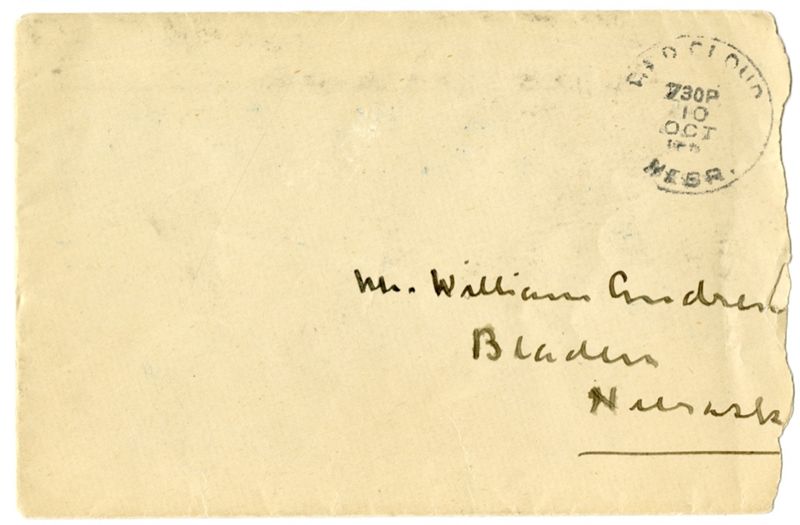 RED CLOUD
730P
10
OCT
NEBR.
Mr. William Andrews
Bladen
Nebraska